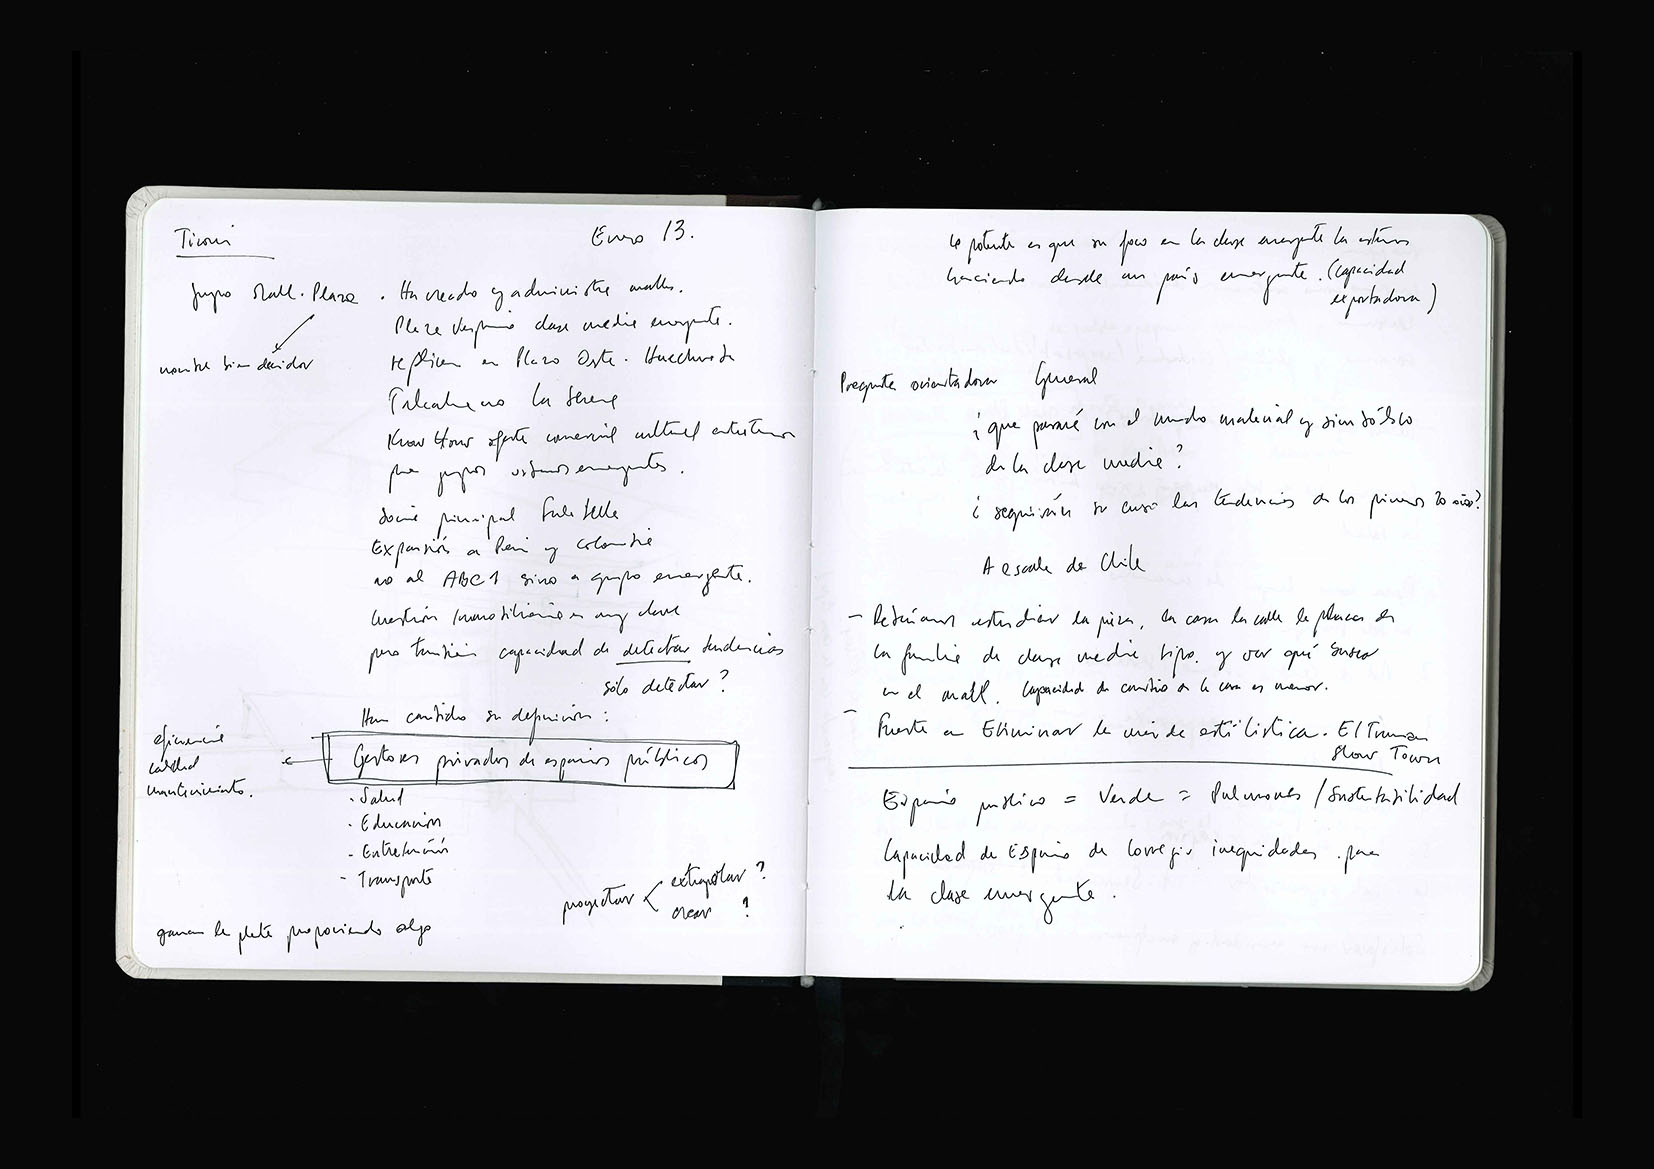 Tironi
Enero 13.
grupo Mall Plaza . Ha creado y administra malls.
Plaza Vespucio clase media emergente.
nombre bien decidor
replican en Plaza Oeste. Huechuraba
Talcahuano La Serena
Know How oferta comercial cultural
para grupos urbanos emergentes.
socio principal Falabella
Expansión a Perú y Colombia
no al ABC1 sino a grupo emergente.
Cuestión inmobiliaria es muy clave
pero también capacidad de detectar tendencias
sólo detectar?
Han cambiado su definición:
eficiencia
calidad
mantenimiento.
Gestores privados de espacios públicos
- Salud
- Educación
- Entretención
- Transporte
proyectar < extrapolar?
crear ?
ganan la plata proporcionando algo
lo potente es que su foco en la clase emergente la estarían
haciendo desde un país emergente. (capacidad
exportadora)
Pregunta orientadora General
¿que pasará con el mundo material y simbólico
de la clase media?
¿seguirán su curso las tendencias de los primeros 20 años?
A escala de Chile
- Debiéramos estudiar la pieza, la casa la calle la plaza de
la familia de clase media tipo. y ver qué busca
en el mall. Capacidad de cambio de la casa es menor.
- Fuerte en Eliminar la estilística. El Truman
Show Town
Espacio público = Verde = Pulmones / Sustentabilidad
Capacidad de Espacio de corregir inequidades. para
la clase emergente.